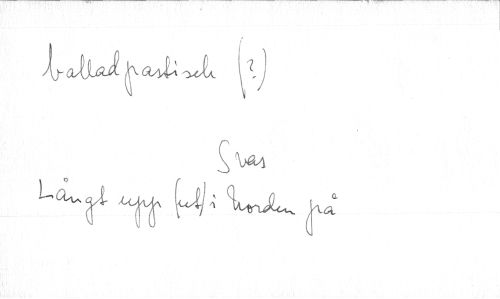 balladpastisch (?)
Svas
Långt upp (ut) i Norden på